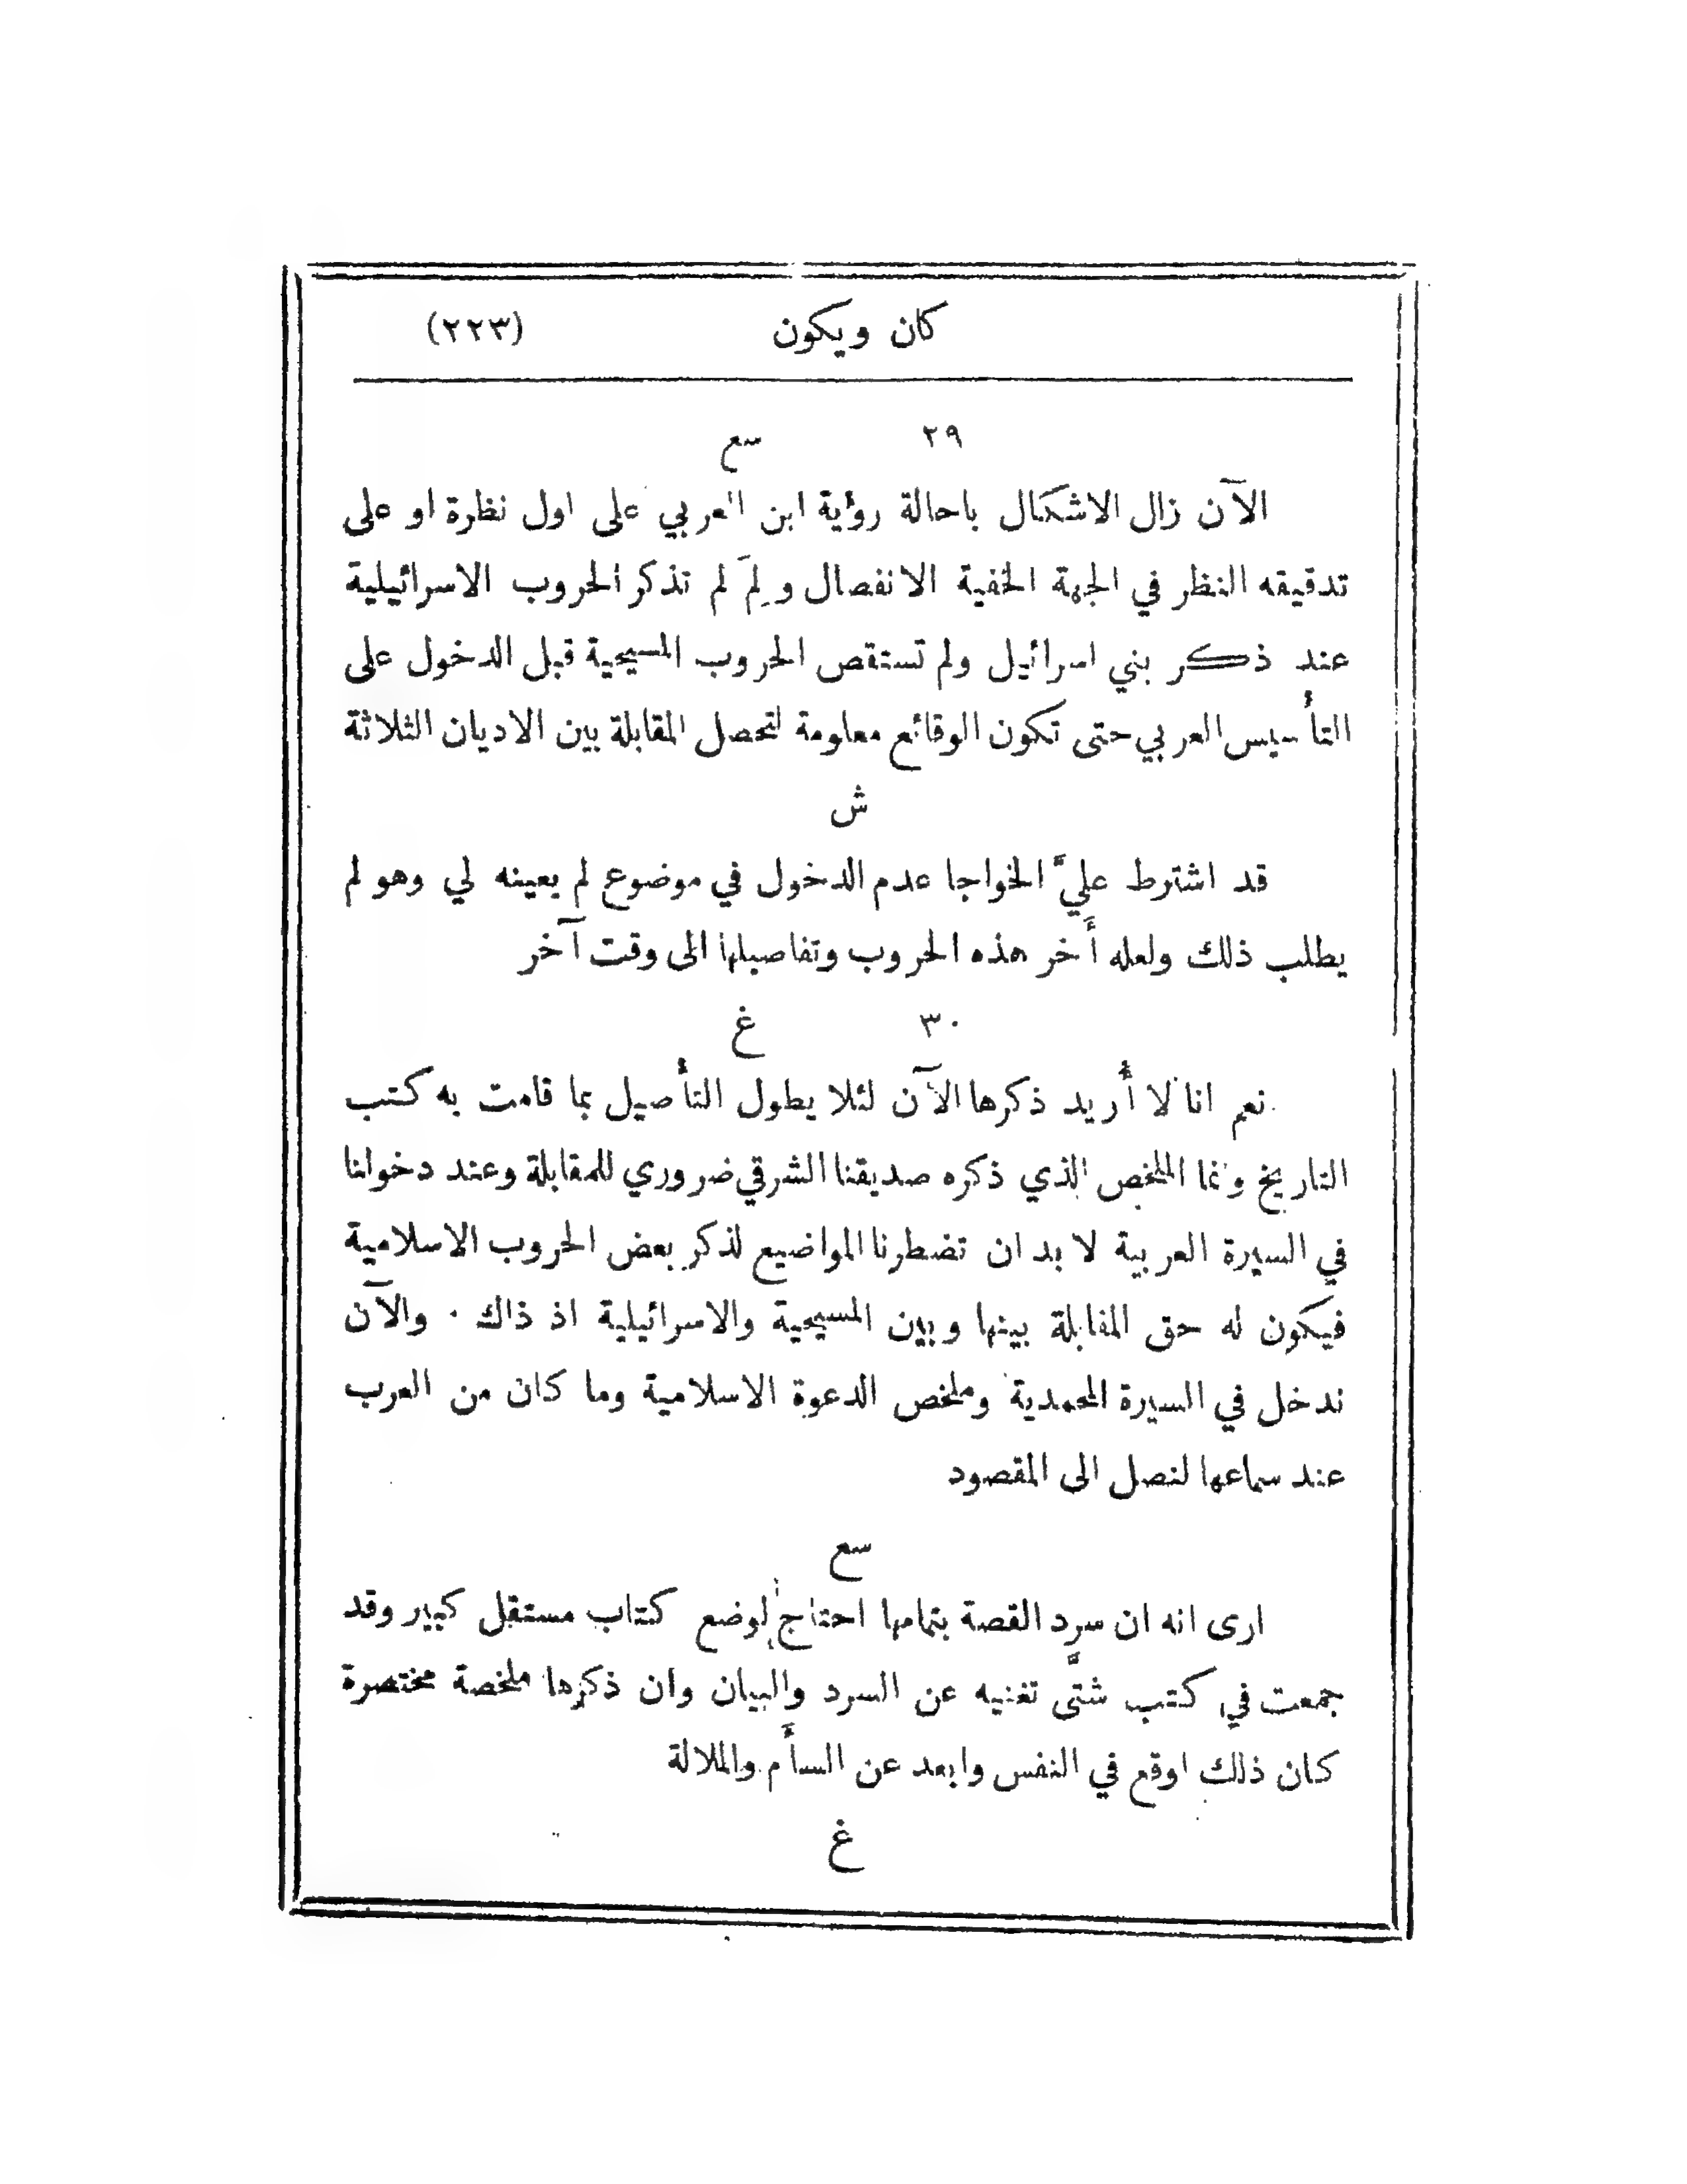 كان ويكون (٢٢٣)
٢٩ سع
الآن زال الاشكال باحالة رؤية ابن العربي على اول نظرة او على
تدقيقه النظر في الجهة الخفية الانفصال ولِمَ لم تذكر الحروب الاسرائيلية
عند ذكر بني اسرائيل ولم تستقص الحروب المسيحية قبل الدخول على
التأسيس العربي حتى تكون الوقائع معلومة لتحصل المقابلة بين الاديان الثلاثة
ش
قد اشترط عليَّ الخواجا عدم الدخول في موضوع لم يعينه لي وهو لم
يطلب ذلك ولعله أَخر هذه الحروب وتفاصيلها الى وقت آخر
٣٠ غ
نعم انا لا أُريد ذكرها الآن لئلا يطول التأصيل بما قامت به كتب
التاريخ وانما الملخص الذي ذكره صديقنا الشرقي ضروري للمقابلة وعند دخولنا
في السيرة العربية لا بد ان تضطرنا المواضيع لذكر بعض الحروب الاسلامية
فيكون له حق المقابلة بينها وبين المسيحية والاسرائيلية اذ ذاك ٠ والآن
ندخل في السيرة المحمدية وملخص الدعوة الاسلامية وما كان من العرب
عند سماعها لنصل الى المقصود
سع
ارى انه ان سرد القصة بتمامها احتاج لوضع كتاب مستقل كبير وقد
جمعت في كتب شتَّى تغنيه عن السرد والبيان وان ذكرها ملخصة مختصرة
كان ذلك اوقع في النفس وابعد عن السأَم والملالة
غ